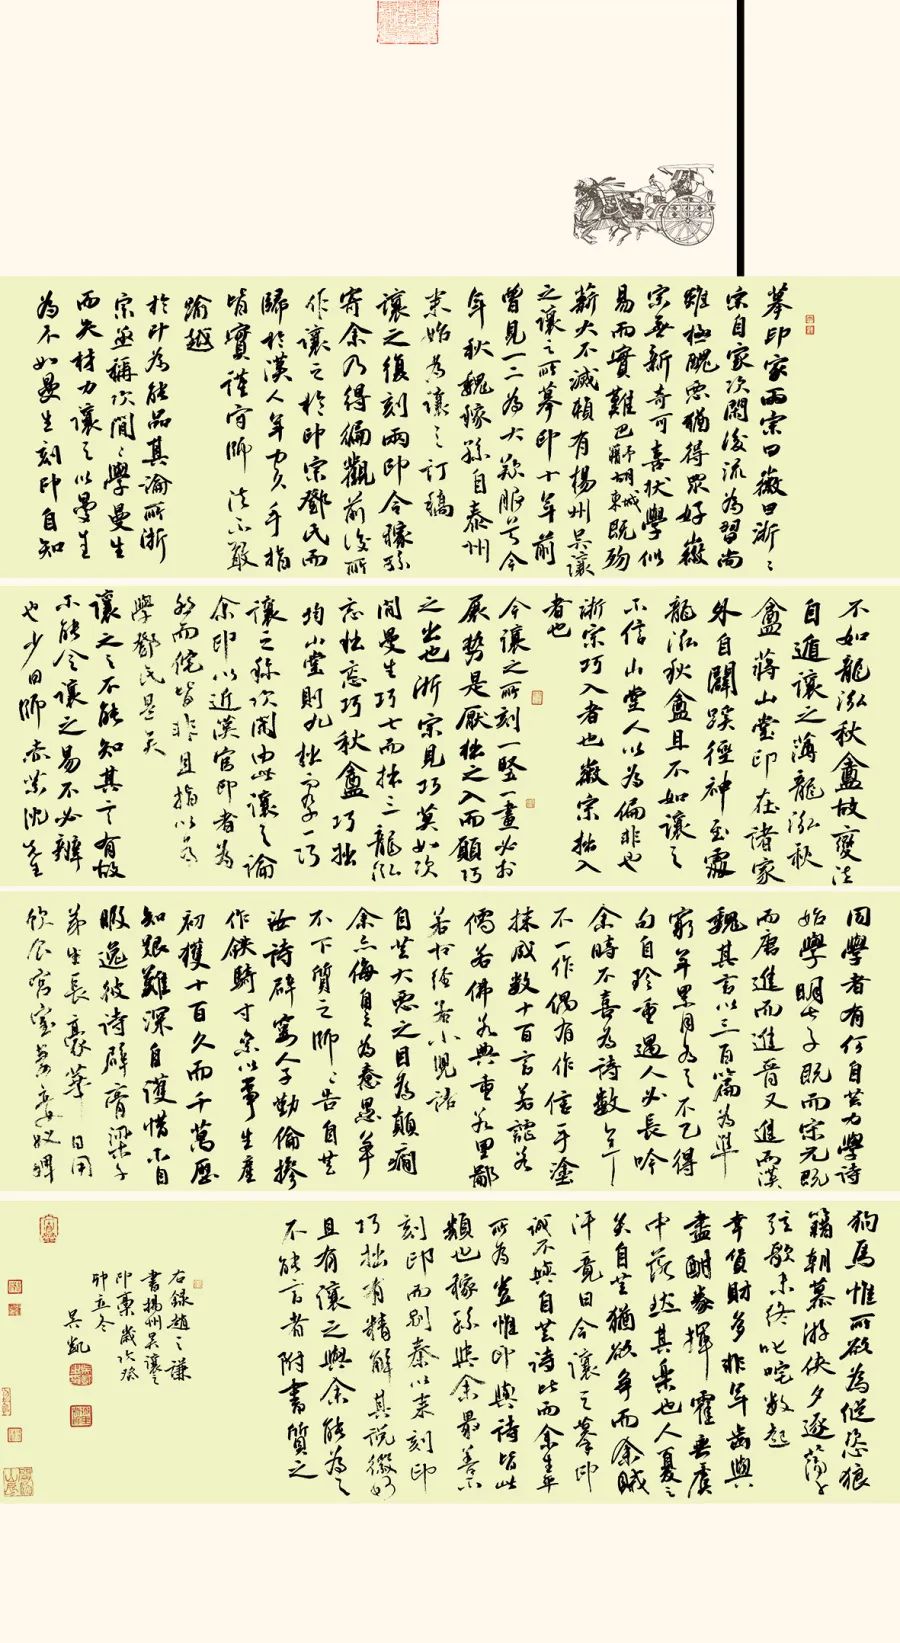 摹印家兩宗曰徽曰浙浙
宗自家次閑後流為習尚
雖極醜惡猶得眾好徽
宗無新奇可喜狀學似
易而實難巴予籍胡城東既歿
薪火不滅賴有揚州吳讓
之讓之所摹印十年前
曾見一二為大歎服今
年秋魏稼孫自泰州
來始為讓之訂稿
讓之復刻兩印令稼孫
寄余乃得徧觀前後所
作讓之於印宗鄧氏而
歸於漢人年力久手指
皆實謹守師法不敢
踰越
於印為能品其論所浙
宗亟稱次閑次閑學曼生
而失材力讓之以曼生
為不如曼生刻印自知
不如龍泓秋盦故變法
自遁讓之薄龍泓秋
盦蔣山堂印在諸家
外自闢蹊徑神至處
龍泓秋盦且不如讓之
不信山堂人以為偏非也
浙宗巧入者也徽宗拙入
者也
今讓之所刻一豎一畫必求
展勢是厭拙之入而願巧
之出也浙宗見巧莫如次
閑曼生巧七而拙三龍泓
忘拙忘巧秋盦巧拙
均山堂則九拙而孕一巧
讓之稱次閑由此讓之論
余印以近漢官印者為
然而侘皆非且指以為
學鄧氏是矣
讓之之不能知其言有故
不能令讓之易不必辨
也少日師赤某沈先生
同學者有何自芸力學詩
始學明七子既而宋元既
而唐進而進晉又進而漢
魏其言以三百篇為準
窮年累月為之不乙得
句自珍重遇人必長吟
余時不喜為詩數年
不一作偶有作信手塗
抹咸數十百言若謠若
儒若佛若典重若里鄙
若對經若小兒語
自芸大惡之目為顛癇
余亦侮自芸為惷愚年
不下質之師師告自芸
汝詩辟窶人子勤儉摻
作銖騎寸絫以事生產
初獲十百久而千萬歷
知艱難深自護惜不自
暇逸彼詩辟膏粱子
弟生長豪華日用
飲食宮室妻妾奴婢
狗馬惟所欲為從恣狼
籍朝慕游俠夕逐蕩子
弦歌未終叱咤數起
幸貲財多非年齒與
盡酣豢揮霍無虞
中落然其樂也人憂之
矣自芸猶欲爭而余賊
汗竟日今讓之摹印
誠不與自芸詩比而余生平
所為豈惟印與詩皆此
類也稼孫與余最善不
刻印而別秦以來刻印
巧拙有精解其說微妙
且有讓之與余能為之
不能言者附書質之
右錄趙之謙
書揚州吳讓之
印稾歲次癸
卯立冬
吳凱